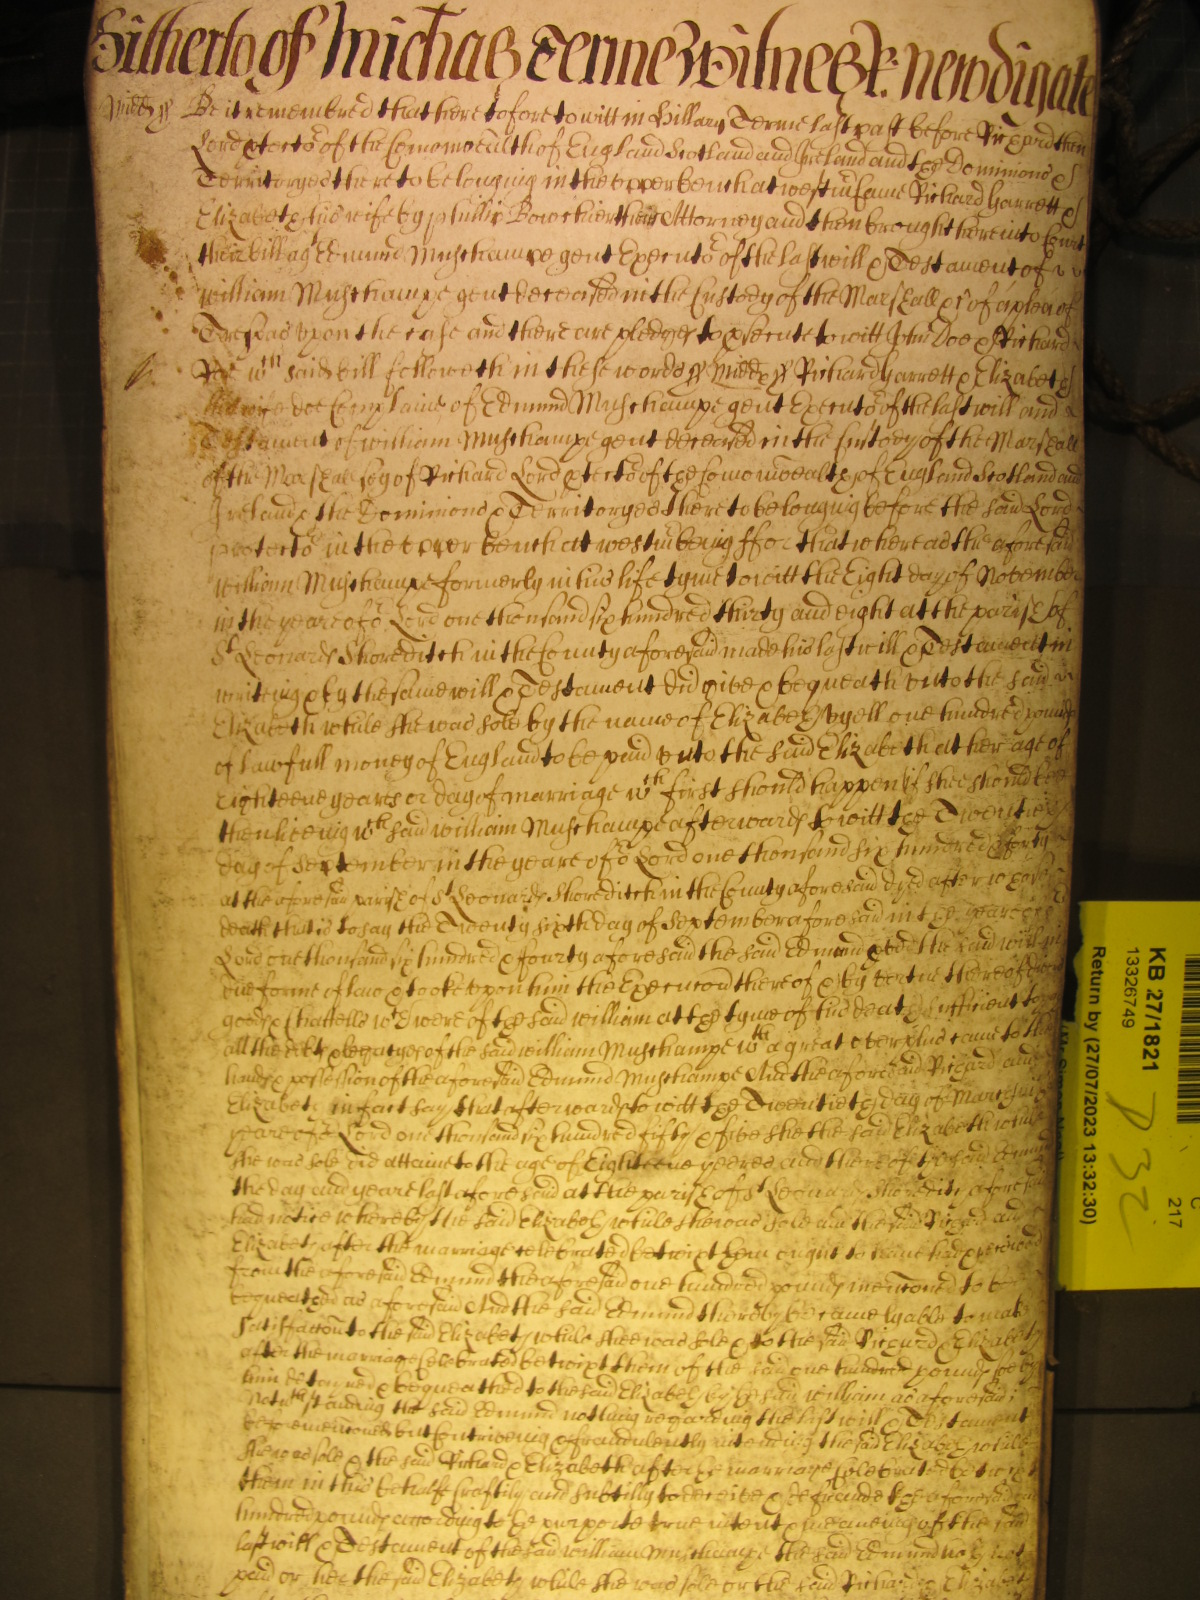 Hitherto of Michas Terme Witnes R: Newdigate
Midds ss Be it remembred that heretofore to witt in Hillary Terme last past before Richard then
Lord ptector of the Comonwealth of England Scotland and Ireland and the Dominions &
Territoryes thereto belonging in the upper bench at westm̃ came Richard Garrett &
Elizabeth his wife by Phillip Bowchier their Attorney and then brought here into Court
their bill agt Edmund Muschampe gent Executor of the last will & Testament of
William Muschampe gent deceased in the Custody of the Marshall &c of a plea of
Trespas upon the case and there are pledges to psecute to witt John Doe & Richard
Roe wch said bill followeth in these words ss Midds ss Richard Garrett & Elizabeth
his wife doe Complaine of Edmund Muschampe gent Executor of the last will and
Testament of william Muschampe gent deceased in the Custody of the Marshall
of the Marshallsey of Richard Lord ptector of the Comonwealth of England Scotland and
Ireland & the Dominions & Territoryes thereto belonging before the said Lord
protector in the upper bench at westm̃ being ffor that whereas the aforesaid
William Muschampe formerly in his life tyme to witt the Eight day of November
in the yeare of or Lord one thousand six hundred thirty and eight at the parish of
St Leonards Shoreditch in the County aforesaid made his last will & Testament in
writeing & by the same will & Testament did give & bequeath unto the said
Elizabeth while she was sole by the name of Elizabeth one hundred pounds
of lawfull money of England to be paid unto the said Elizabeth at her age of
eighteene yeares or day of marriage wch first should happen if shee should bee
then liveing wch said william Muschampe afterwards to witt the Twentieth
day of September in the yeare of or Lord one thousand six hundred & forty
at the aforesaid parish of St Leonards Shoreditch in the County aforesaid dyed after whose
death that is to say the Twenty sixth day of September aforesaid in the yeare of or
Lord one thousand six hundred & fourty aforesaid the said Edmund pved the said will in
due forme of law & tooke upon him the Execucon thereof & by vertue thereof
goods & Chattells wch were of the said william at the tyme of his death sufficient to
all the debts & legacyes of the said william Muschampe wth a great overplus came to the
hands & possession of the aforesaid Edmund Muschampe And the aforesaid Richard and
Elizabeth in fact say that afterwards to witt the Twentieth day of March in
yeare of or Lord one thousand six hundred fifty & five she the said Elizabeth while
she was sole did attaine to the age of Eighteene yeeres and thereof the said Edmund
the day and yeare last aforesaid at the parish of St Leonards Shoreditch aforesaid
had notice whereby the said Elizabeth while she was sole and the said Richard and
Elizabeth after the marriage celebrated betwixt them ought to have had & received
from the aforesaid Edmund the aforesaid one hundred pounds menconed to be
bequeathed as aforesaid And the said Edmund thereby became lyable to make
satisfaccon to the said Elizabeth while shee was sole & to the said Richard & Elizabeth
after the marriage celebrated betwixt them of the said one hundred pounds soe by
him & bequeathed to the said Elizabeth by the said William as aforesaid
Notwthstanding the said Edmund nothing regarding the last will & Testament
beforemenconed but Contriveing & fraudulently intending the said Elizabeth while
she was sole & the said Richard & Elizabeth after the marriage celebrated betwixt
them in this behalfe craftily and subtilly to deceive & defraude the aforesaid one
hundred pounds according to the purporte true intent & meaneing of the said
last will & Testament of the said william Muschampe the said Edmund hath not
paid or her the said Elizabeth while she was sole or the said Richard & Elizabeth
KB 27/1821
13326749
Return by (27/07/2023 13:32:30)
C
217